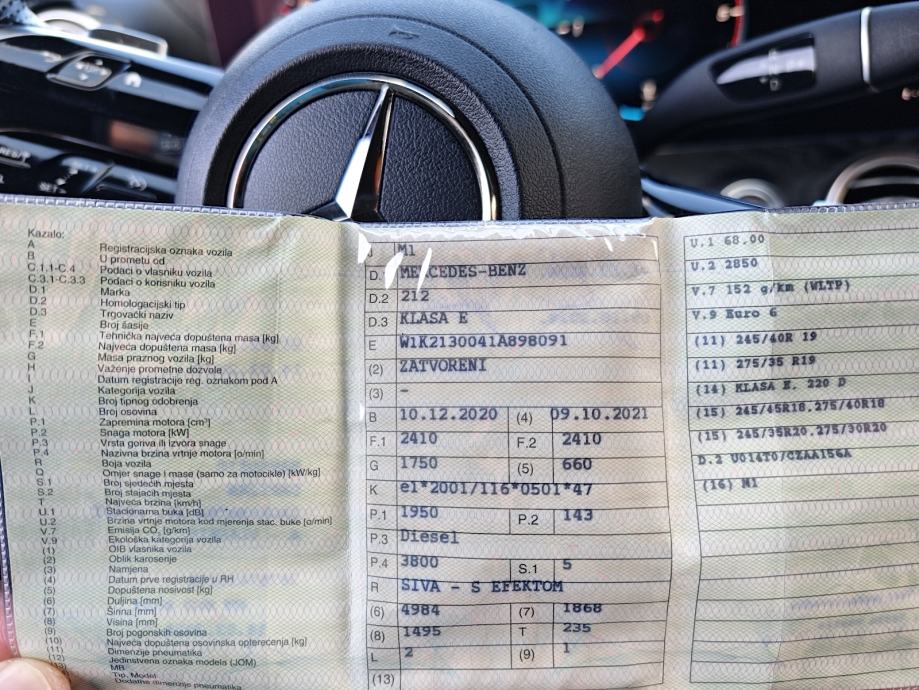 Kazalo:
A Registracijska oznaka vozila
B U prometu od
C.1.1-C.4 Podaci o vlasniku vozila
C.3.1-C.3.3 Podaci o korisniku vozila
D.1 Marka
D.2 Homologacijski tip
D.3 Trgovački naziv
E Broj šasije
F.1 Tehnička najveća dopuštena masa [kg]
F.2 Najveća dopuštena masa [kg]
G Masa praznog vozila [kg]
H Važenje prometne dozvole
I Datum registracije reg. oznakom pod A
J Kategorija vozila
K Broj tipnog odobrenja
L Broj osovina
P.1 Zapremina motora [cm³]
P.2 Snaga motora [kW]
P.3 Vrsta goriva ili izvora snage
P.4 Nazivna brzina vrtnje motora [o/min]
R Boja vozila
Q Omjer snage i mase (samo za motocikle) [kW/kg]
S.1 Broj sjedećih mjesta
S.2 Broj stajaćih mjesta
T Najveća brzina [km/h]
U.1 Stacionarna buka [dB]
U.2 Brzina vrtnje motora kod mjerenja stac. buke [o/min]
V.7 Emisija CO₂ [g/km]
V.9 Ekološka kategorija vozila
(1) OIB vlasnika vozila
(2) Oblik karoserije
(3) Namjena
(4) Datum prve registracije u RH
(5) Dopuštena nosivost [kg]
(6) Duljina [mm]
(7) Širina [mm]
(8) Visina [mm]
(9) Broj pogonskih osovina
(10) Najveća dopuštena osovinska opterećenja [kg]
(11) Dimenzije pneumatika
(12) Jedinstvena oznaka modela (JOM)
MB
Tip, Model
Dodatne dimenzije pneumatika
J M1
D. MERCEDES-BENZ
D.2 212
D.3 KLASA E
E W1K2130041A898091
(2) ZATVORENI
(3) -
B 10.12.2020 (4) 09.10.2021
F.1 2410 F.2 2410
G 1750 (5) 660
K e1*2001/116*0501*47
P.1 1950 P.2 143
P.3 Diesel
P.4 3800 S.1 5
R SIVA - S EFEKTOM
(6) 4984 (7) 1868
(8) 1495 T 235
L 2 (9) 1
(13)
U.1 68.00
U.2 2850
V.7 152 g/km (WLTP)
V.9 Euro 6
(11) 245/40R 19
(11) 275/35 R19
(14) KLASA E. 220 D
(15) 245/45R18.275/40R18
(15) 245/35R20.275/30R20
D.2 U014T0/CZAA156A
(16) N1